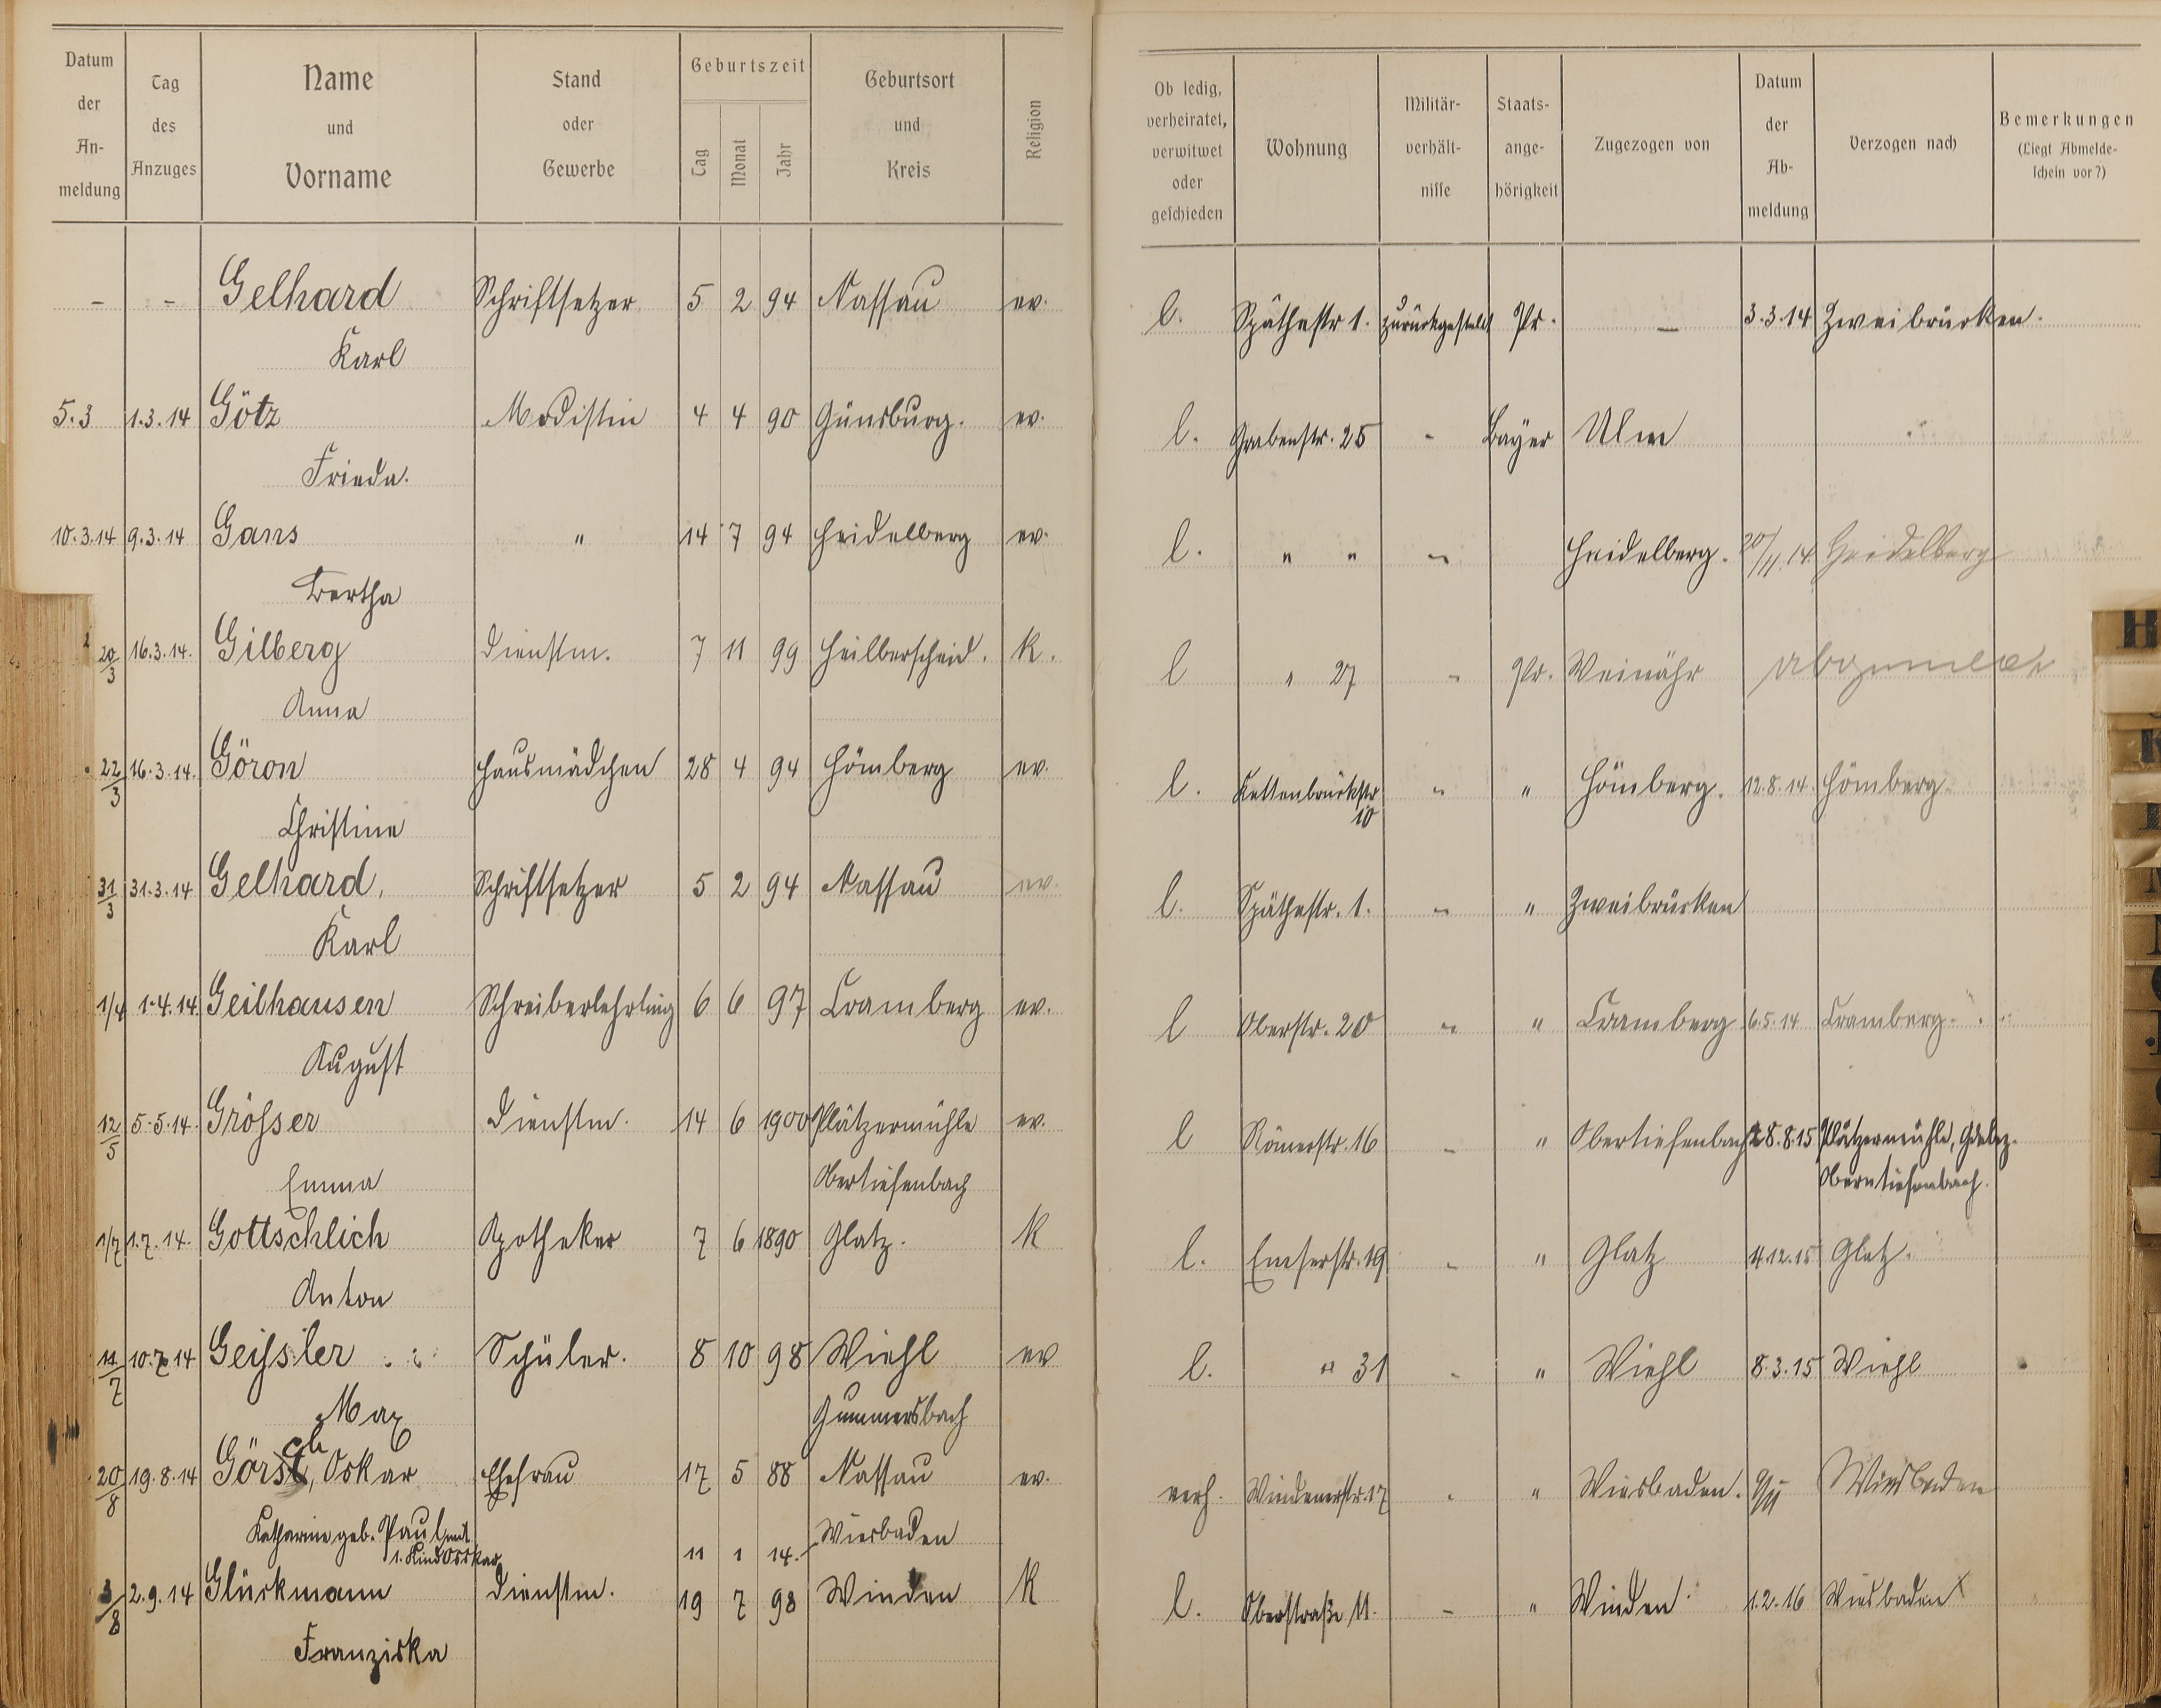 Datum der An- meldung | Tag des Anzuges | Name und Vorname | Stand oder Gewerbe | Geburtszeit Tag Monat Jahr | Geburtsort und Kreis | Religion | Ob ledig, verheiratet, verwitwet oder geschieden | Wohnung | Militär- verhält- nisse | Staats- ange- hörigkeit | Zugezogen von | Datum der Ab- meldung | Verzogen nach | Bemerkungen (Liegt Abmelde- schein vor?)
– – Gelhard Schriftsetzer 5 2 94 Nassau ev. l. Späthestr 1. zurückgestellt Pr. — 3.3.14 Zweibrücken.
Karl
5.3 1.3.14 Götz Modistin 4 4 90 Günsburg. ev. l. Grabenstr. 25 - Bayer Ulm
Frieda.
10.3.14 9.3.14 Gans " 14 7 94 Heidelberg ev. l. " " " Heidelberg. 20/11.14 Heidelberg
Bertha
20/3 16.3.14. Gilberg Dienstm. 7 11 99 Heilberscheid. K. l " 27 " Pr. Weinähr
Anna
22/3 16.3.14. Göron Hausmädchen 28 4 94 Hömberg ev. l. Kettenbrückstr 10 " " Hömberg. 12.8.14. Hömberg.
Christine
31/3 31.3.14 Gelhard, Schriftsetzer 5 2 94 Nassau ev. l. Späthestr. 1. " " Zweibrücken
Karl
1/4 1.4.14. Geilhausen Schreiberlehrling 6 6 97 Cramberg ev. l Oberstr. 20 " " Cramberg 6.5.14 Cramberg.
August
12/5 5.5.14. Größser Dienstm. 14 6 1900 Plätzermühle ev. l Römerstr. 16 " " Obertiefenbach 28.8.15 Plätzermühle,
Emma Obertiefenbach Oberntiefenbach.
1/7 1.7.14. Gottschlich Apotheker 7 6 1890 Glatz. K l. Emserstr. 19 " " Glatz 4.12.15 Glatz.
Anton
11/7 10.7.14 Geißsler Schüler. 8 10 98 Wiehl ev l. " 31 " " Wiehl 8.3.15 Wiehl
Max Gummersbach
20/8 19.8.14 Görsch, Oskar Ehefrau 17 5 88 Nassau ev. verh. Windenerstr. 17 " " Wiesbaden. 9/11 Wiesbaden
Katharine geb. Paul mit Wiesbaden
1. Kind Osskar 11 1 14.
3/8 2.9.14 Glückmann Dienstm. 19 7 98 Winden K l. Oberstraße 11. - " Winden 1.2.16 Wiesbaden
Franziska
H